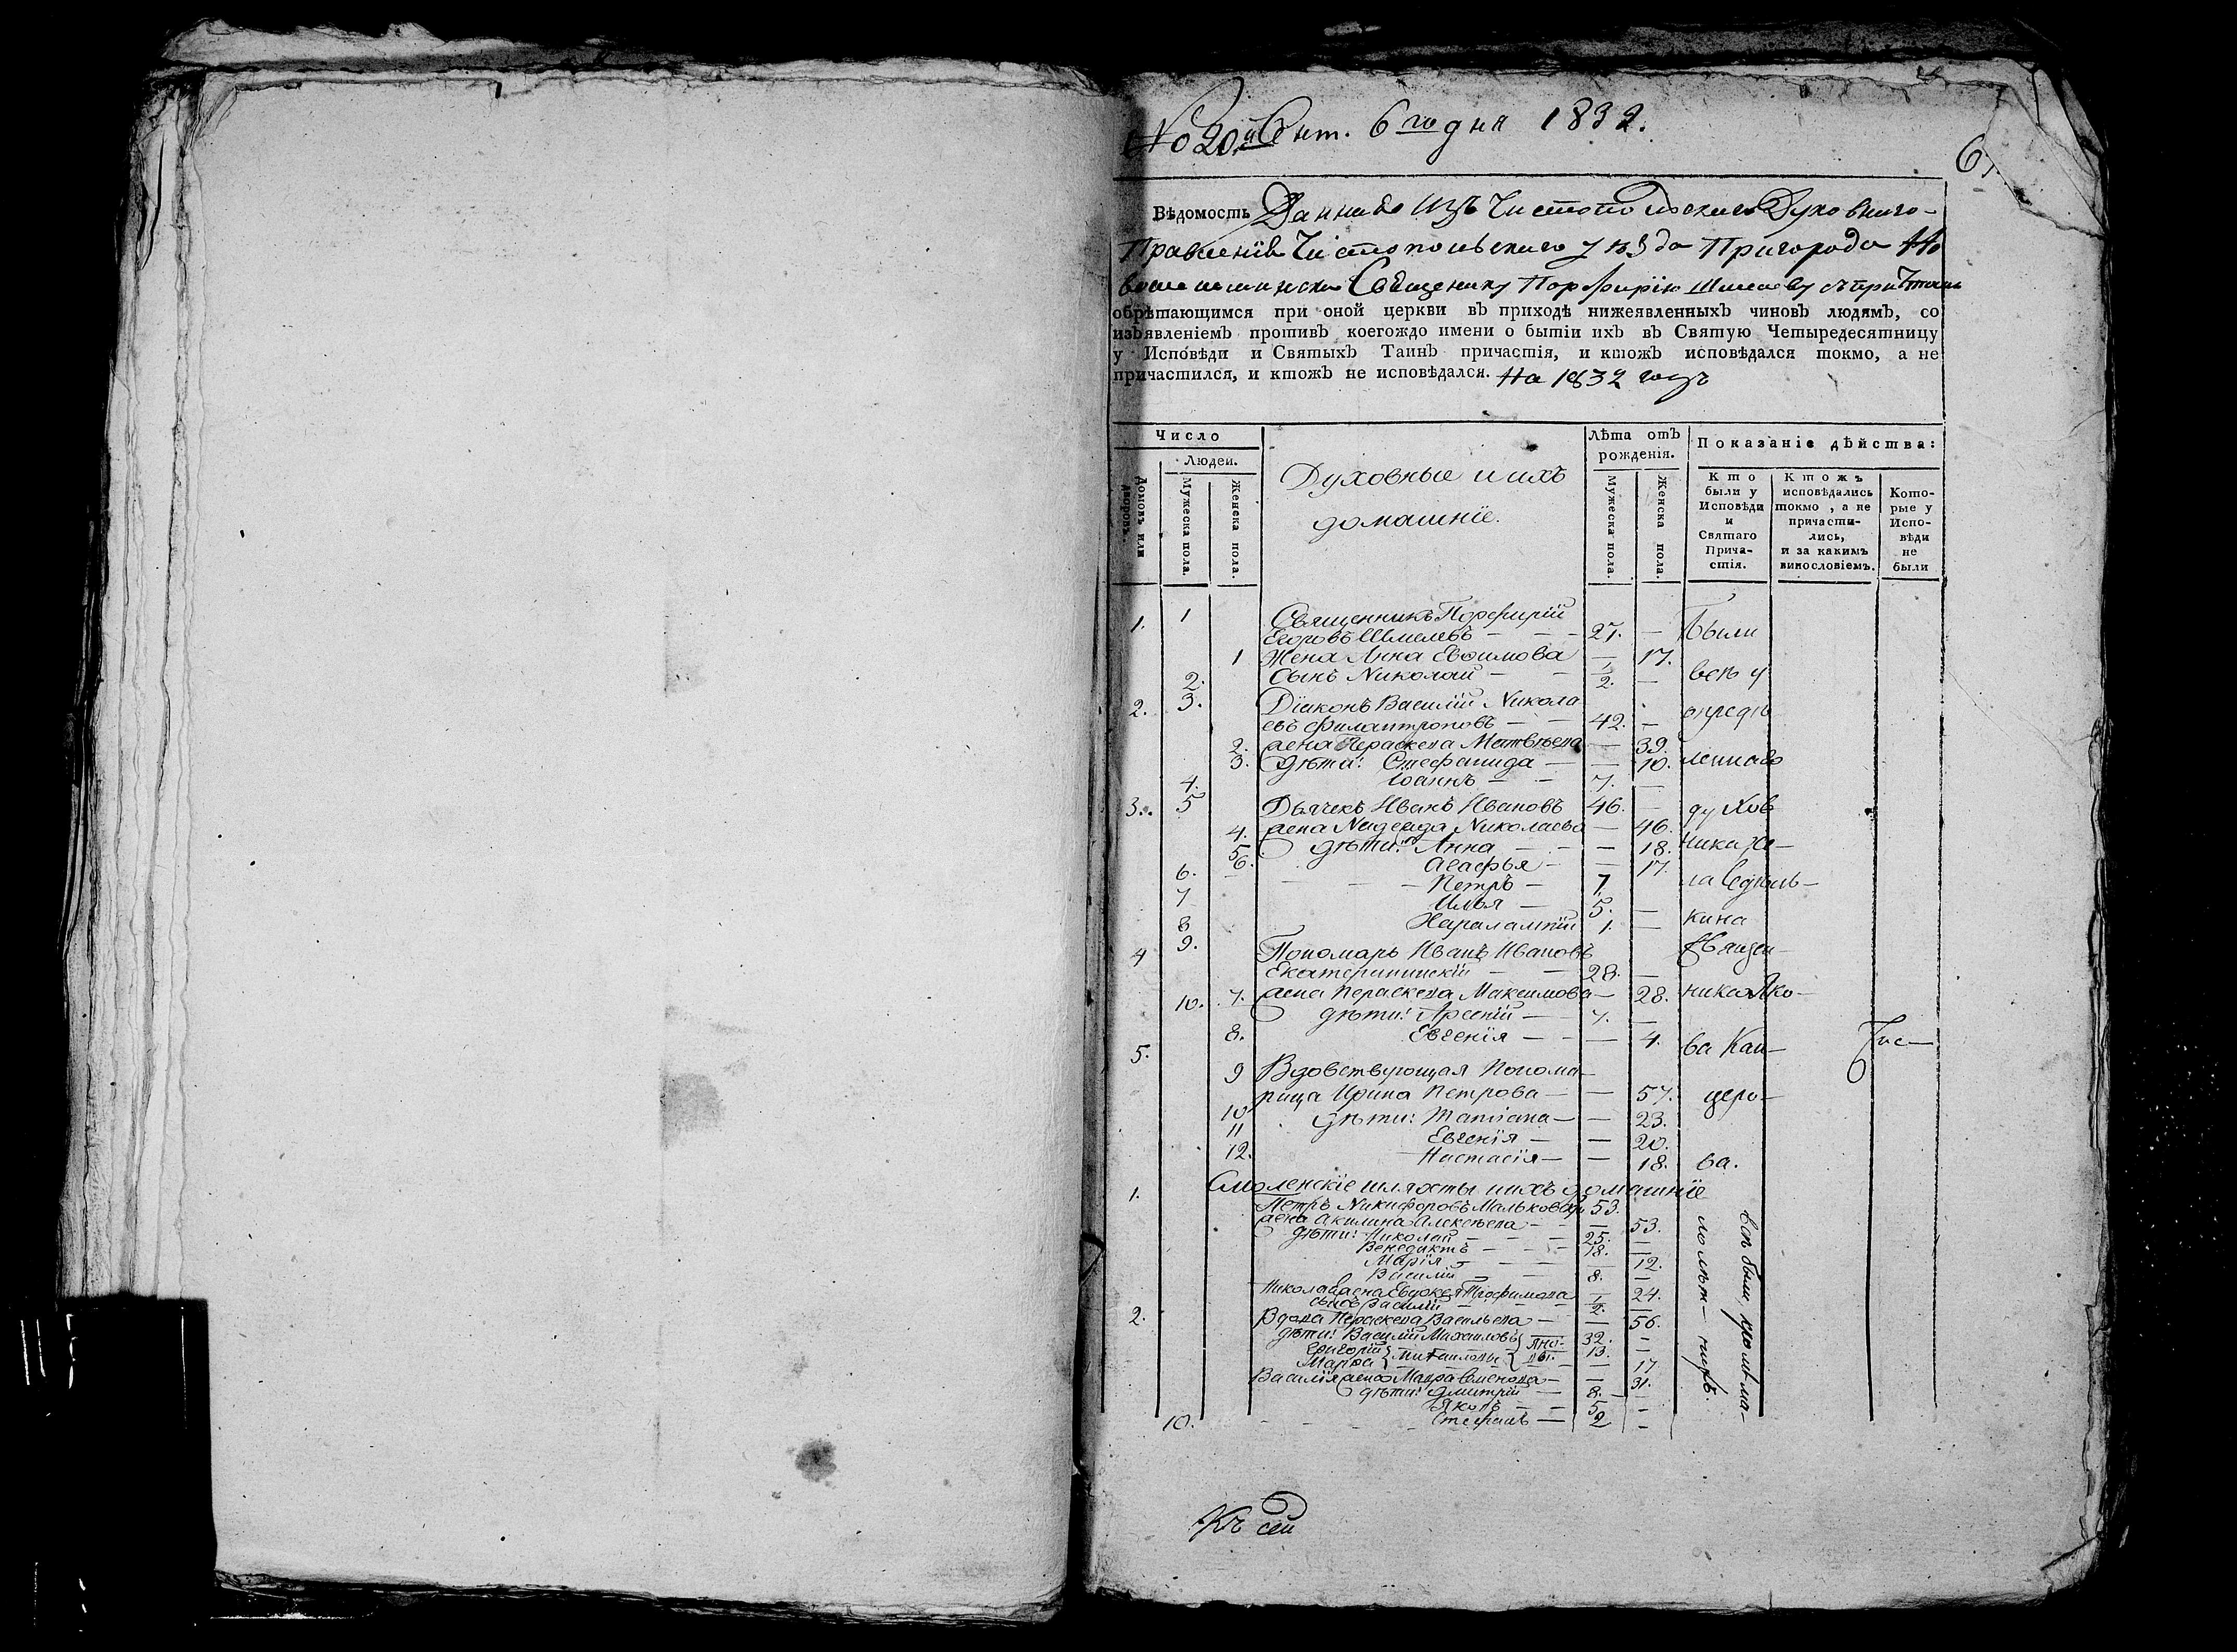 No 20й Сент. 6го дня 1832.
67.
Вѣдомость Данная изъ Чистопольскаго Духовнаго
Правленія Чистопольскаго уѣзда Пригорода Но
вошешминска Священику Порфирію Шмелеву съ причтомъ
обрѣтающимся при оной церкви въ приходѣ нижеявленныхъ чиновъ людямъ, со
изъявленіемъ противъ коегождо имени о бытіи ихъ въ Святую Четыредесятницу
у Исповѣди и Святыхъ Таинъ причастія, и ктожъ исповѣдался токмо, а не
причастился, и ктожъ не исповѣдался. На 1832 годъ
Число
Людей.
Домовъ или дворовъ.
Мужеска пола.
Женска пола.
Духовные и ихъ
домашніе.
Лѣта отъ
рожденія.
Мужеска пола.
Женска пола.
Показаніе дѣйства:
Кто
были у
Исповѣди
и
Святаго
Прича-
стія.
Ктожъ
исповѣдались
токмо, а не
причасти-
лись,
и за какимъ
винословіемъ.
Кото-
рые у
Испо-
вѣди
не
были
1. 1 Священникъ Порфирій
Егоровъ Шмелевъ — — — 27. — Были
1 Жена Анна Евѳимова — 17.
2. Сынъ Николай — — 1/2. — всѣ у
2. 3. Діаконъ Василій Никола
евъ Филантроповъ — — 42. — опредѣ
2. жена Параскева Матвѣева — 39.
3. дѣти: Стефанида — — 10. леннаго
4. Іоаннъ — — 7. —
3. 5 Дьячекъ Иванъ Ивановъ 46. — духов
4. жена Надежда Николаева — 46.
5 дѣти: Анна — — — 18. ника Се—
6. Агафья — — 17.
6. — — — Петръ — 7. ла Седѣль—
7 Илья — 5. —
8 Харалампій 1. — кина
4 9. Пономарь Иванъ Ивановъ Священ—
Екатерининскій — — 28. —
7. жена Параскева Максимова — 28. ника Яко—
10. дѣти: Арсеній — — 7. —
8. Евгенія — — — 4. ва Кан—
5. 9 Вдовствующая Понома—
рица Ирина Петрова — — 57. церо—
10 дѣти: Татіана — — 23.
11 Евгенія — — 20.
12. Настасія — — 18. ва.
Смоленскіе шляхты и ихъ домашніе
1. Петръ Никифоровъ Мальковскій 53.
жена Акилина Алексѣева — — — 53.
дѣти: Николай — — — 25. —
Венедиктъ — — — 18. —
Марія — — — — 12.
Василій — — 8. —
Николая жена Евдокея Трофимова — 24.
сынъ Василій — — — 1/2. —
2. Вдова Параскева Васильева — — 56.
дѣти: Василій Михаиловъ 32. —
Григорій Михаиловы 13. —
Марѳа — — 17
Василія жена Мавра Семенова — — 31.
дѣти: Дмитрій — 8. —
Яковъ — — 5 —
10. Стефанъ — 2 —
всѣ были, кромѣ ма—
лолѣт— нихъ.
Къ сей